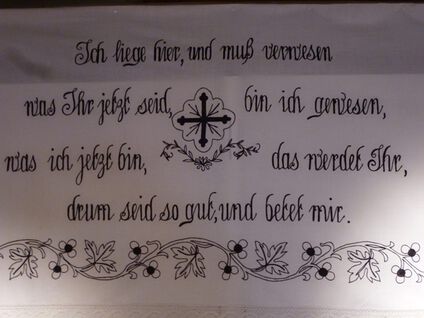 Ich liege hier, und muß verwesen
was Ihr jetzt seid, bin ich gewesen,
was ich jetzt bin, das werdet Ihr,
drum seid so gut, und betet mir.